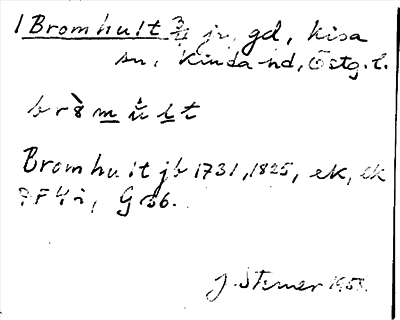 1 Bromhult 3/4 jr, gd, Kisa
sn, Kinda hd, Östg. l.
Bromhult jb 1731, 1825, ek, ek
G 36.
J. Sterner 1958.